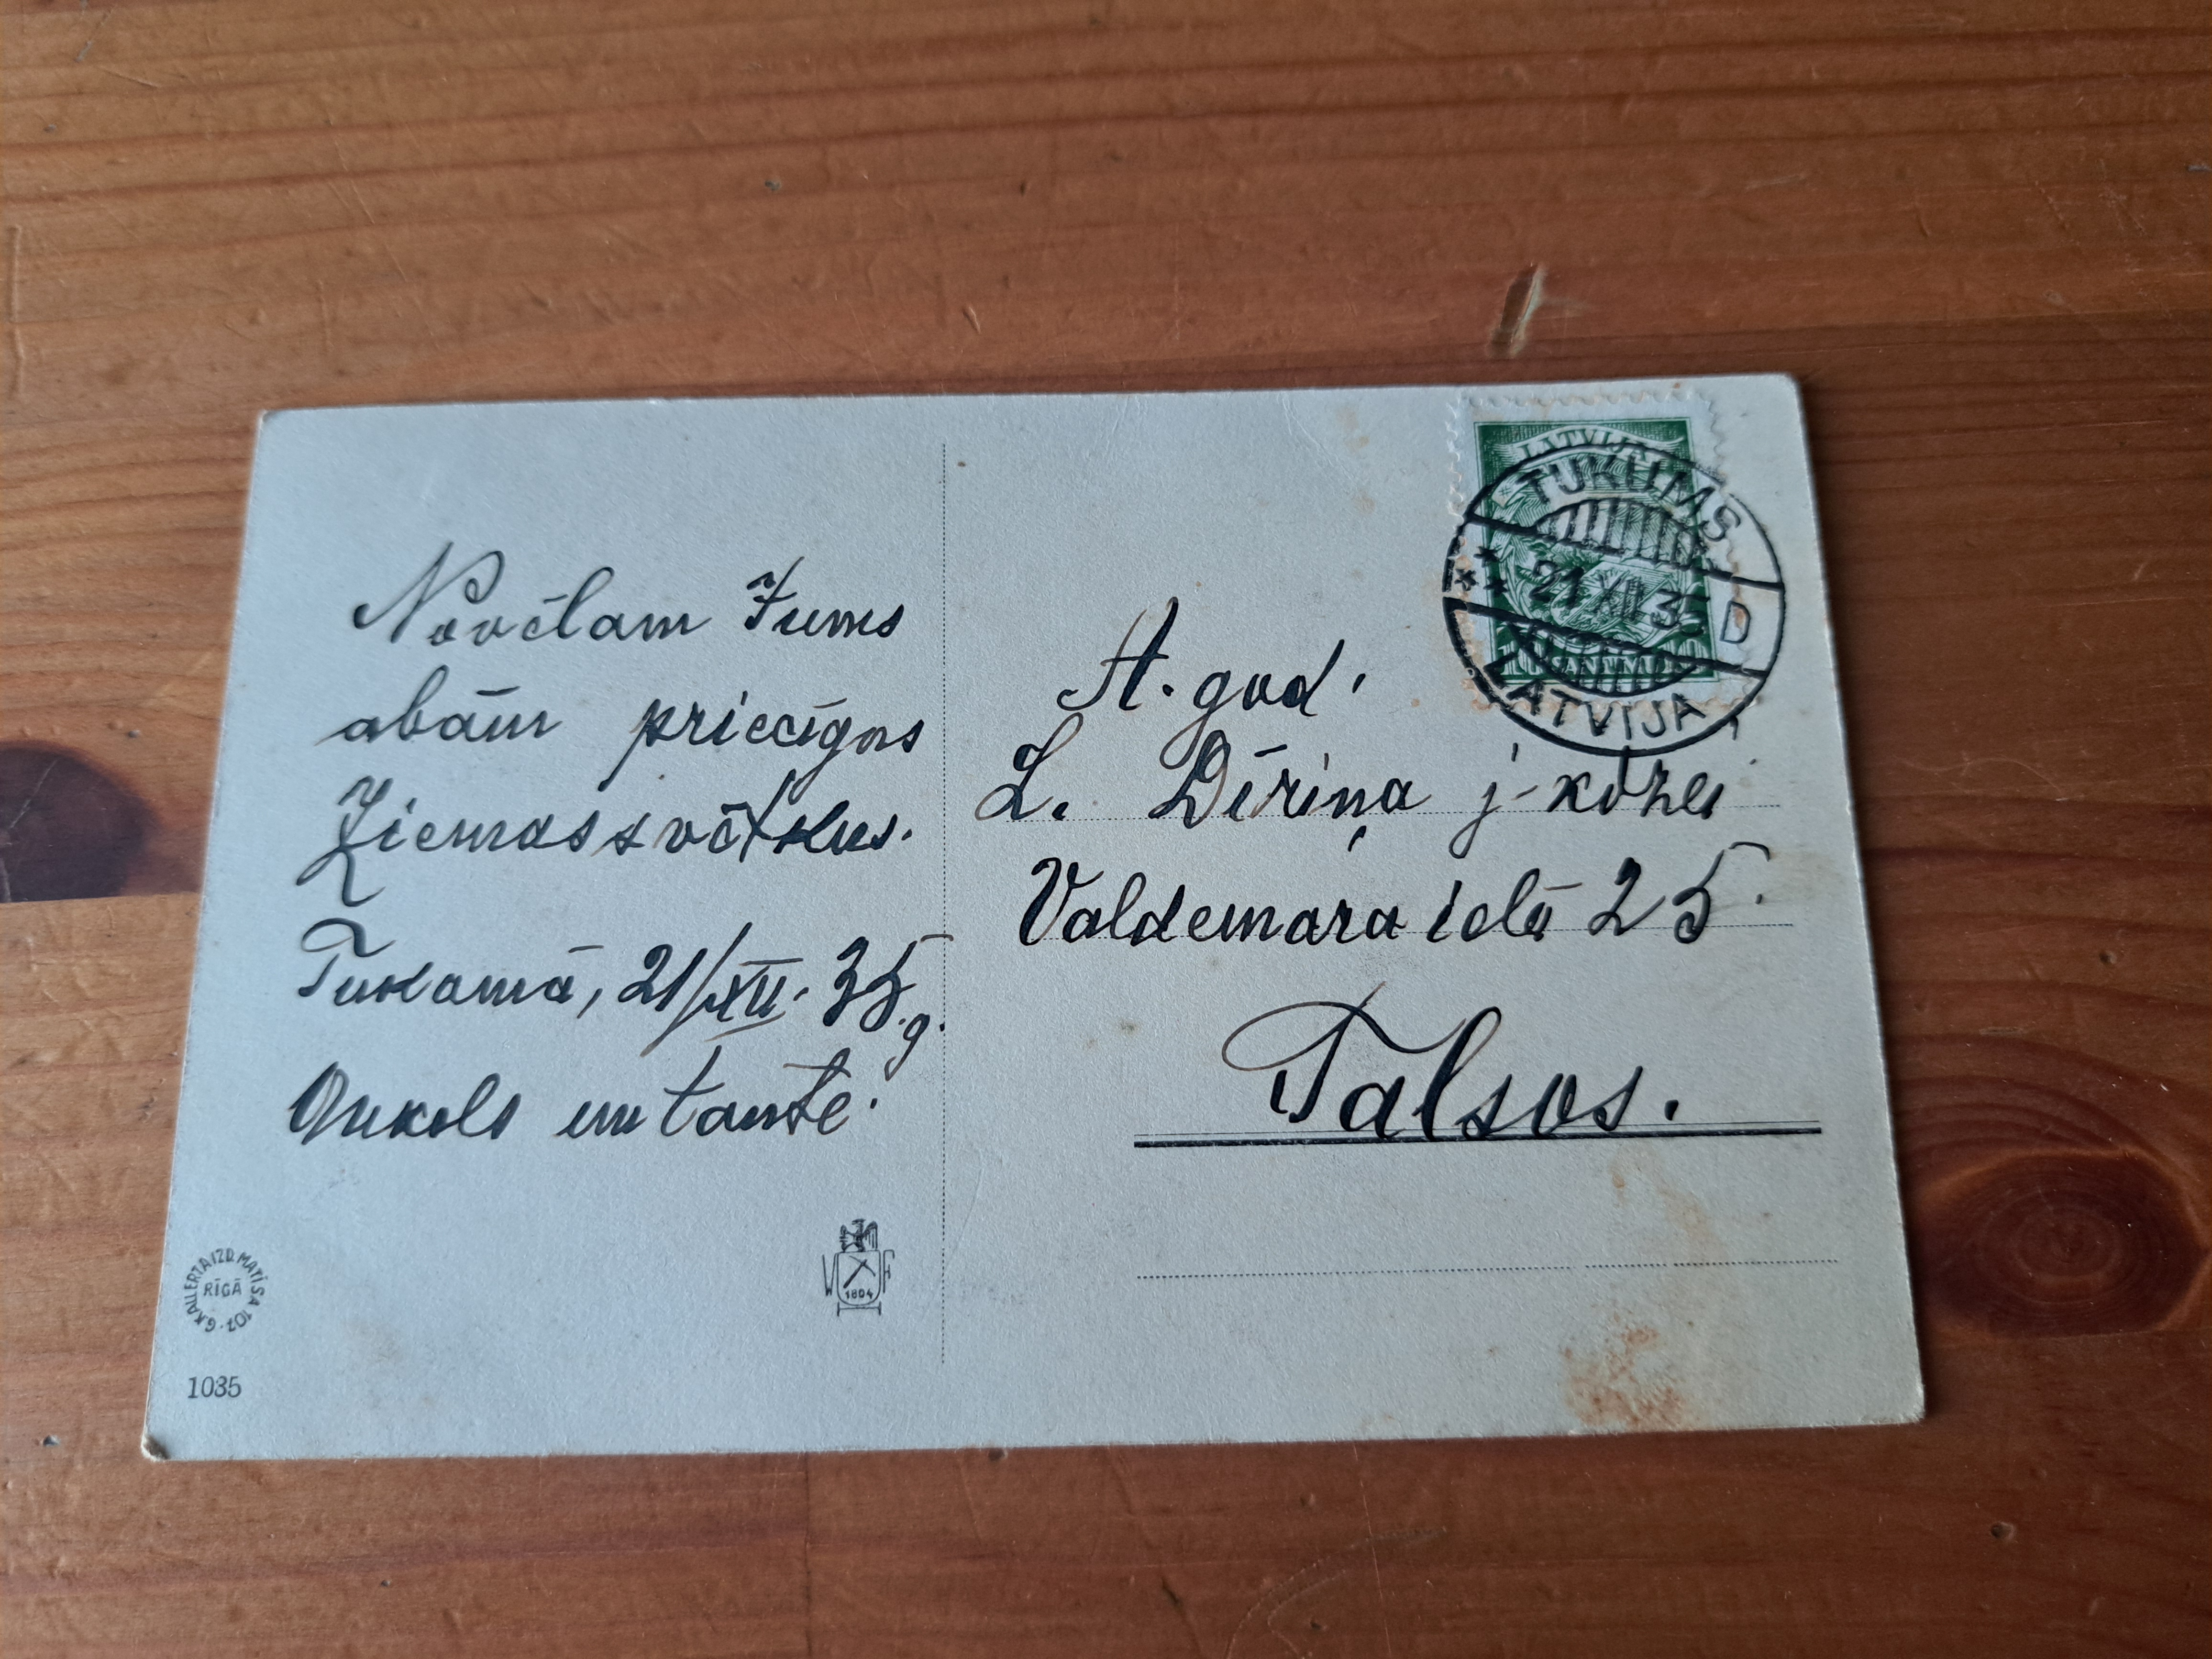 Novēlam Jums
abām priecīgas
Ziemassvētkus.
Tukumā, 21/XII. 35.g.
Onkols un tante.
A. god.
L. Dīriņa j-kdzei
Valdemara ielā 25.
Talsos.
LATVIJA
TUKUMS
21 XII 35
D
LATVIJA
G.KALLERTA IZD. MATĪSA 107.
RĪGĀ
1035
W F
1804